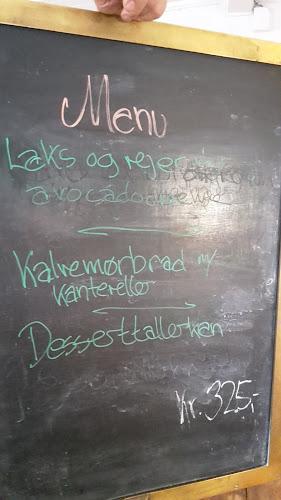 Menu
Laks og rejer
avocado
Kalvemørbrad m/
kantereller
Desserttallerken
Kr. 325,-